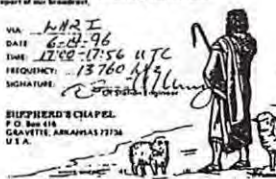 report of our broadcast,
VIA:
DATE 6-8-96
TIME: 17:00-17:56 UTC
FREQUENCY: 13760
SIGNATURE:
SHEPHERD'S CHAPEL
P.O. Box 416
GRAVETTE, ARKANSAS 72736
U S A